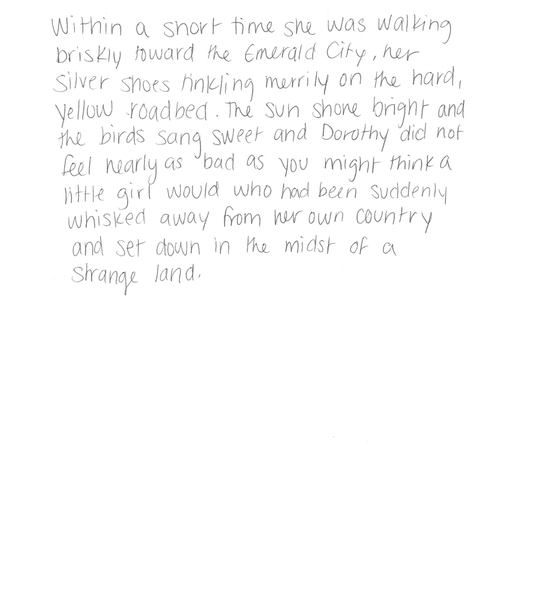 Within a short time she was walking
briskly toward the Emerald City, her
Silver shoes tinkling merrily on the hard,
yellow roadbed. The sun shone bright and
the birds sang sweet and Dorothy did not
feel nearly as bad as you might think a
little girl would who had been suddenly
whisked away from her own country
and set down in the midst of a
strange land.